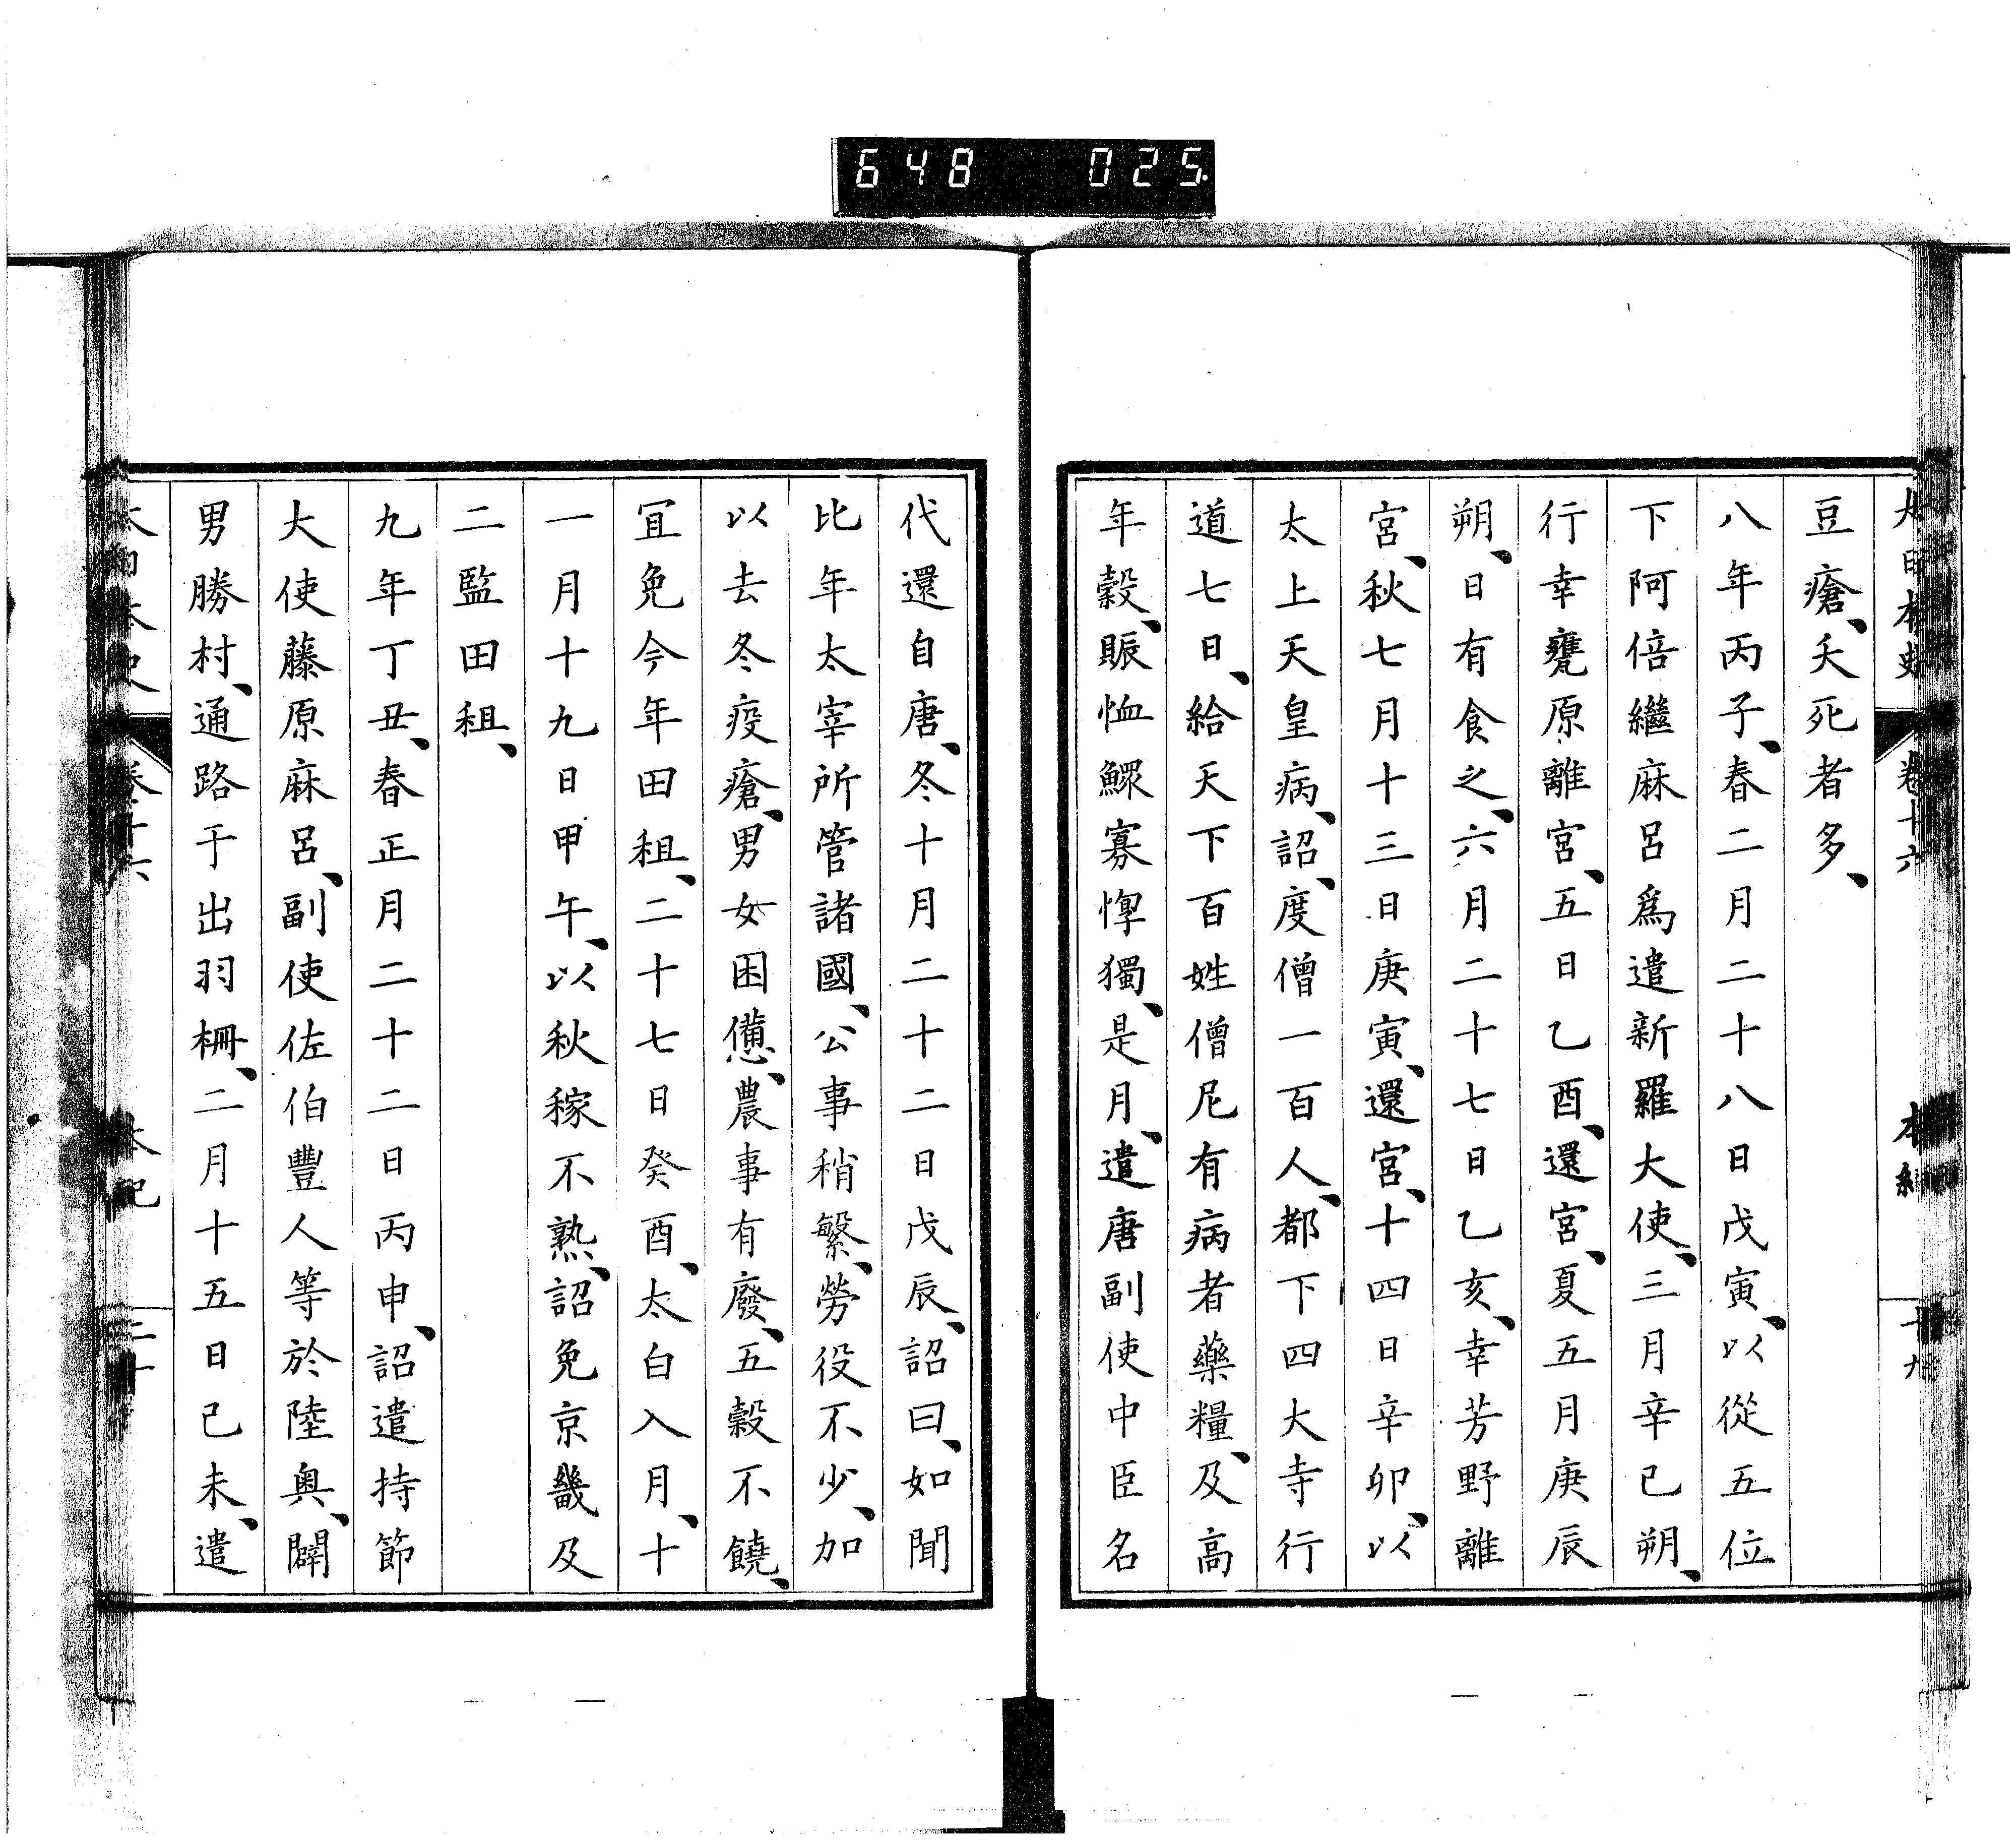 648 025
豆瘡、夭死者多、
八年丙子、春二月二十八日戊寅、以從五位
下阿倍繼麻呂爲遣新羅大使、三月辛巳朔、
行幸甕原離宮、五日乙酉、還宮、夏五月庚辰
朔、日有食之、六月二十七日乙亥、幸芳野離
宮、秋七月十三日庚寅、還宮、十四日辛卯、以
太上天皇病、詔、度僧一百人、都下四大寺行
道七日、給天下百姓僧尼有病者藥糧、及高
年穀、賑恤鰥寡惸獨、是月、遣唐副使中臣名
代還自唐、冬十月二十二日戊辰、詔曰、如聞
比年太宰所管諸國、公事稍繁、勞役不少、加
以去冬疫瘡、男女困憊、農事有廢、五穀不饒、
宜免今年田租、二十七日癸酉、太白入月、十
一月十九日甲午、以秋稼不熟、詔免京畿及
二監田租、
九年丁丑、春正月二十二日丙申、詔遣持節
大使藤原麻呂、副使佐伯豐人等於陸奧、闢
男勝村、通路于出羽柵、二月十五日己未、遣